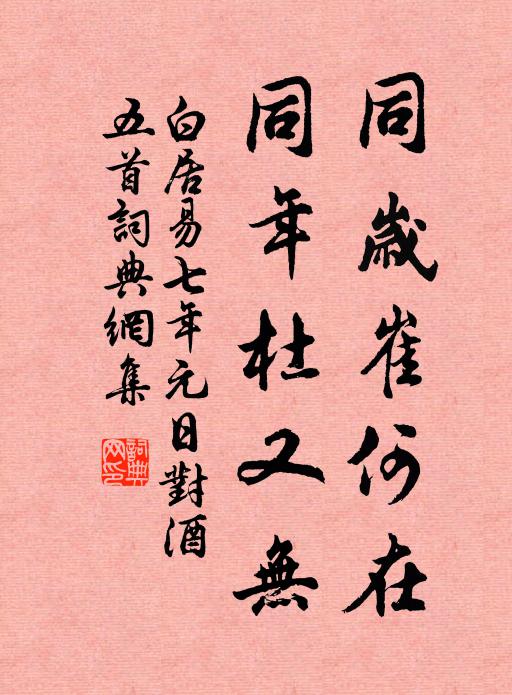 同歲崔何在
同年杜又無
白居易七年元日對酒
五首詞典網集
詞典網印